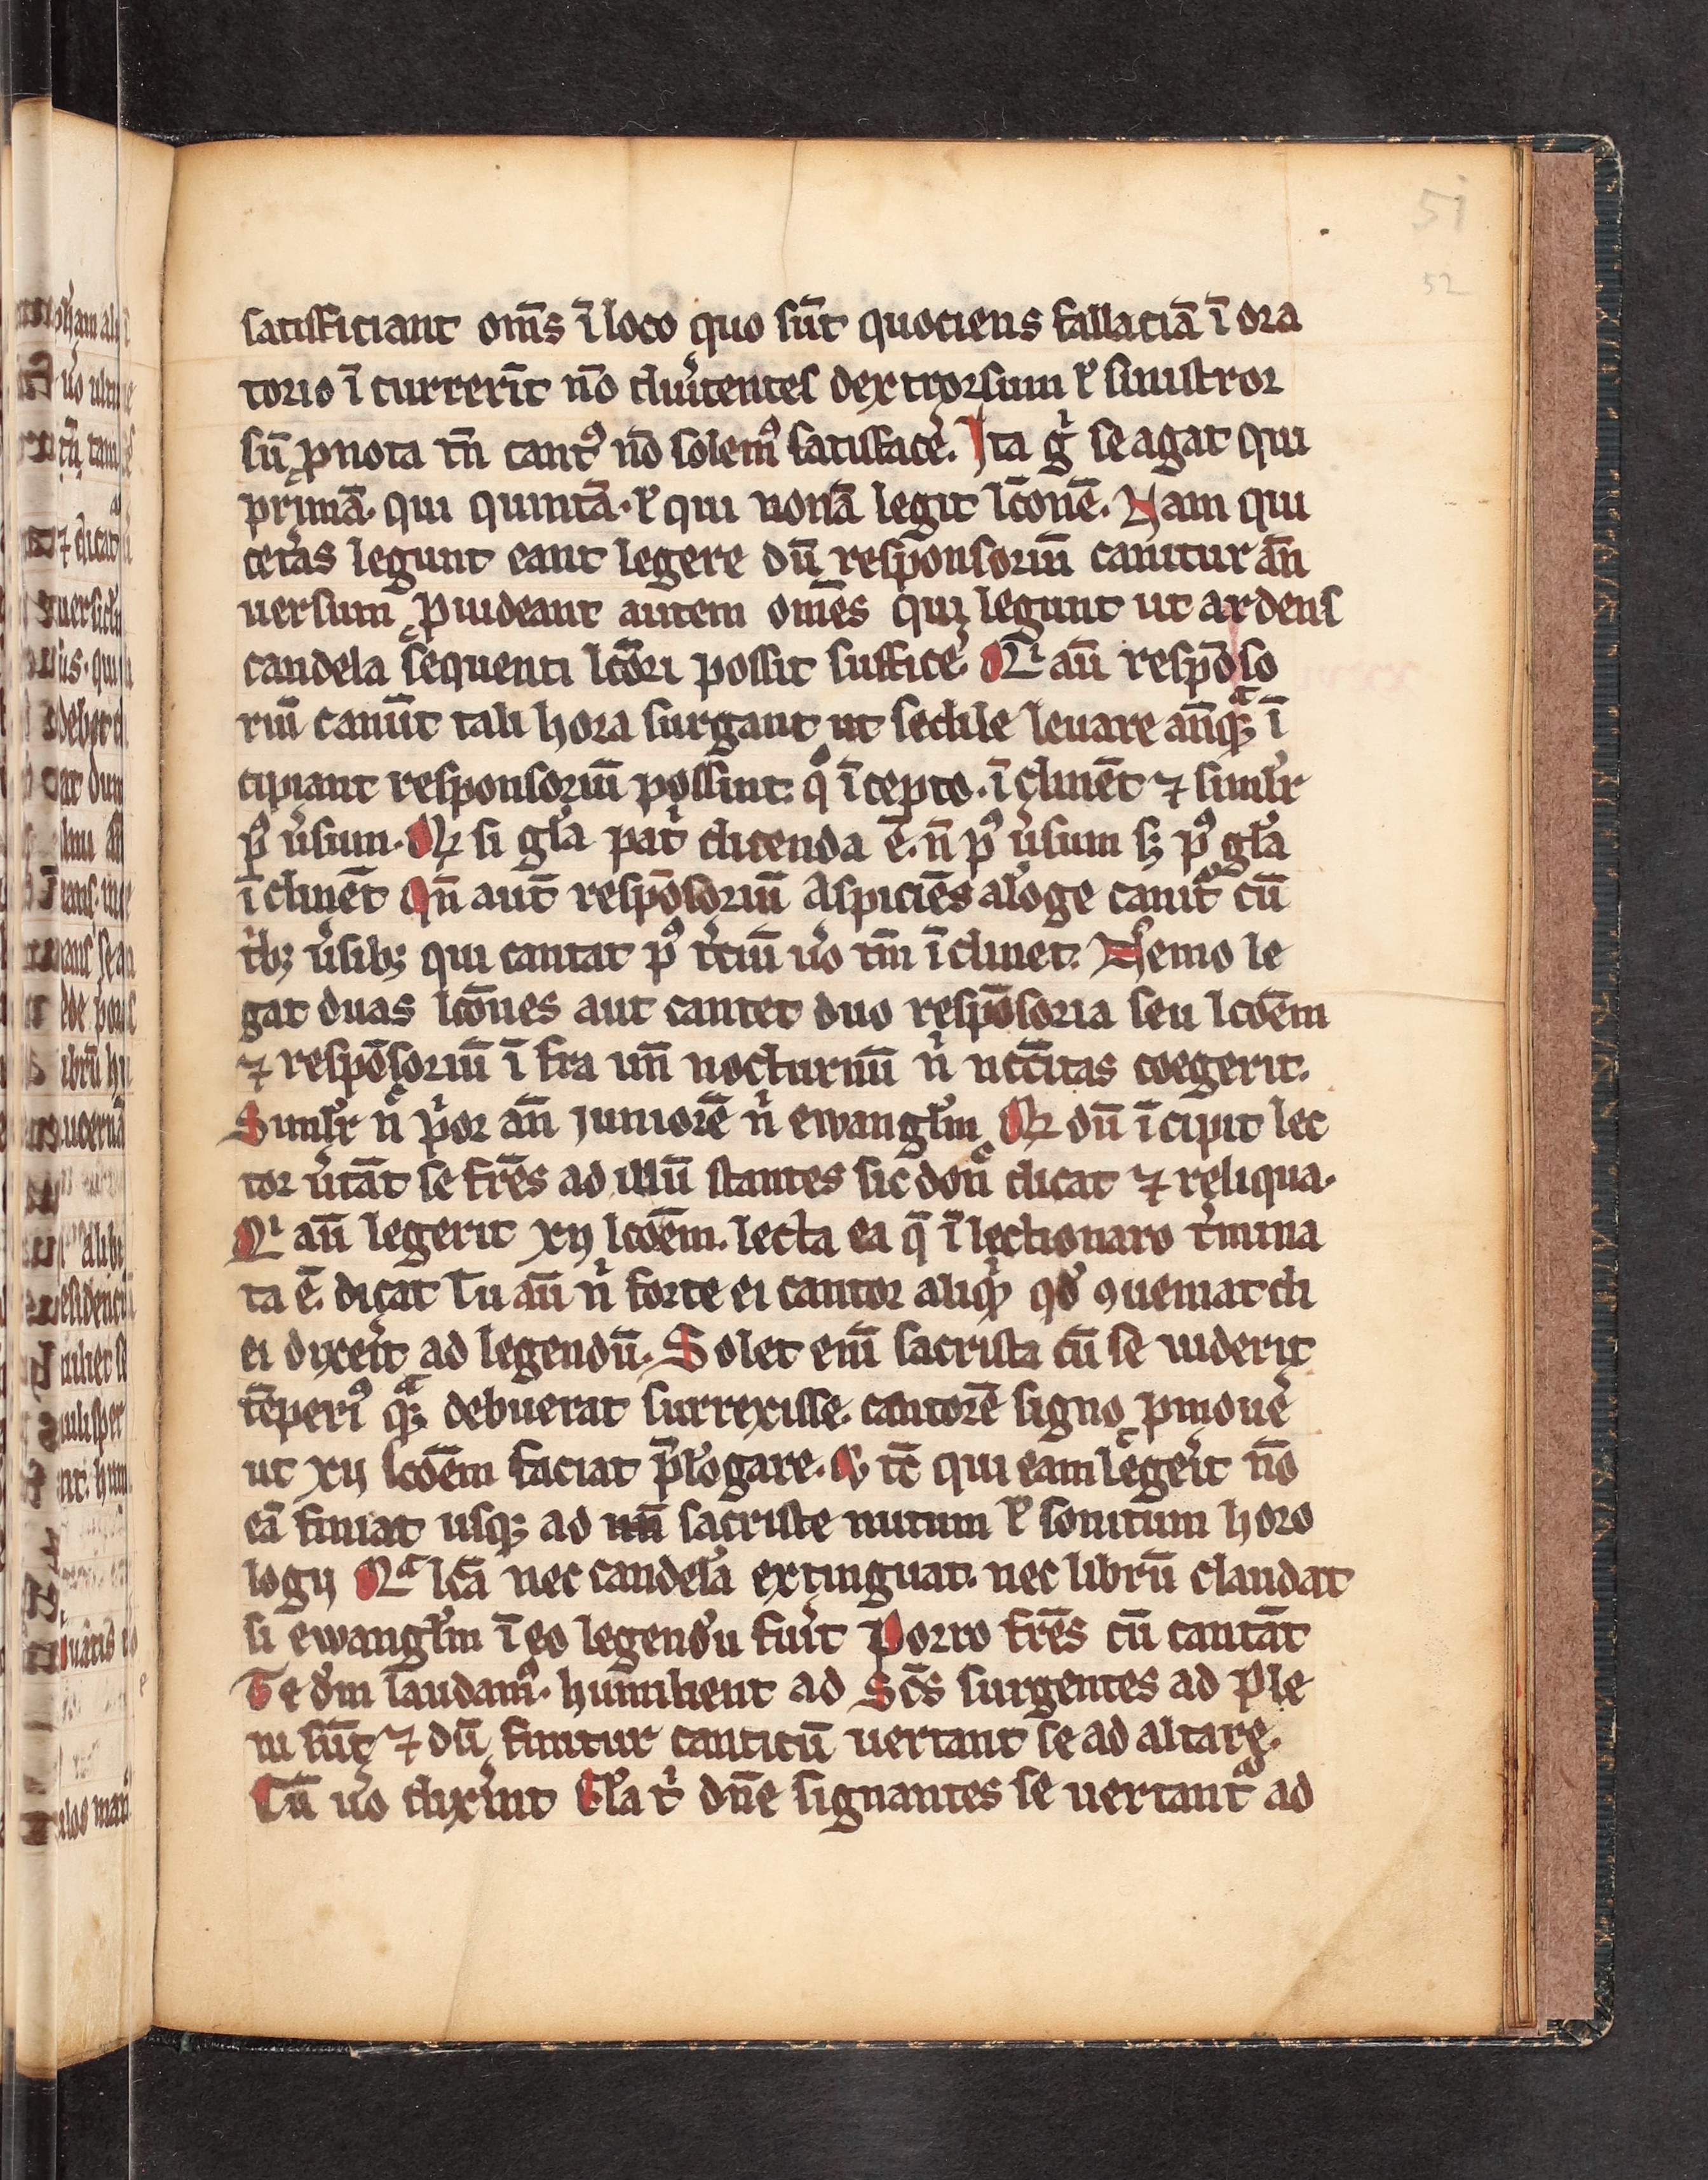 51
52
satisficiant om̄s ī loco quo sūt quociens fallaciā ī ora
torio ī currerīt nō diůtentes dextrorsum ł sinistror
sū ꝓ nota tn̄ cantꝰ nō solemꝰ satisfacẽ. Ita gͥ se agat qui
primā. qui quintā. ł qui nonā legit lc̄onē. Nam qui
ceťas legunt eant legere dū responsoriū canitur an̄
uersum ꝓuideant autem om̄es qui legunt ut ardens
candela sequenti lc̄ori possit sufficẽ. Qͥ au̅ respōso
riū canūt tali hora surgant ut sedile leuare an̄qᷓꝫ ī
cipiant responsoriū possint. qͦ īcepto. ī clinēt ⁊ simil̾r
pꝰ ůsum. Qꝫ si gl̾a patͥ dicenda ē. n̄ pꝰ ůsum sꝫ pꝰ gl̾a
ī clinēt Qn̄ aut̄ respōsoriū Aspiciēs a l̾oge canitᷣ cū
tͥbꝫ ůsibꝫ qui cantat pꝰ tͥciū ůo tm̄ ī clinet. Nemo le
gat duas lc̄ones aut cantet duo respōsoria seu lc̄oēm
⁊ respōsoriū ī fra un̄ nocturnū nͥ nc̄c̄itas coegerit.
Simil̾r nͨ pͥor an̄ juniorē nͥ ewangl̾m Qꝫ dū ī cipit lec
tor ůtāt se fr̄es ad illū stantes sic donͨ dicat ⁊ reliqua.
Qͥ au̅ legerit xij lc̄oēm. lecta ea q̄ ī lectionaro t̾mina
ta ē. dicat Tu au̅ nͥ forte ei cantor aliqͥd qd̾ ꝯueniat di
ei dixeͥt ad legendū. Solet enī sacrista cū se uiderit
tēperiꝰ qᷓꝫ debuerat surrexisse. cantorē signo p̱mouẽ
ut xij lc̄oēm faciat p̄l̾ogare. Sꝫ tc̄ qui eam legeͥt nō
eā finiat usqꝫ ad nn̄ sacriste nutum ł sonitum horo
logij Qᷓ lc̄a nec candel̾a extinguat. nec librū claudat
si ewangl̾m ī eo legend̾u fuͥt Porro fr̄es cū cantāt
Te d̾m laudamꝰ. humilient ad Sc̄s surgentes ad Ple
ni sūt ⁊ dū finitur canticū uertant se ad altare.
Cū ůo dixͥint Gl̾a tͥ dn̄e signantes se uertantᷣ ad